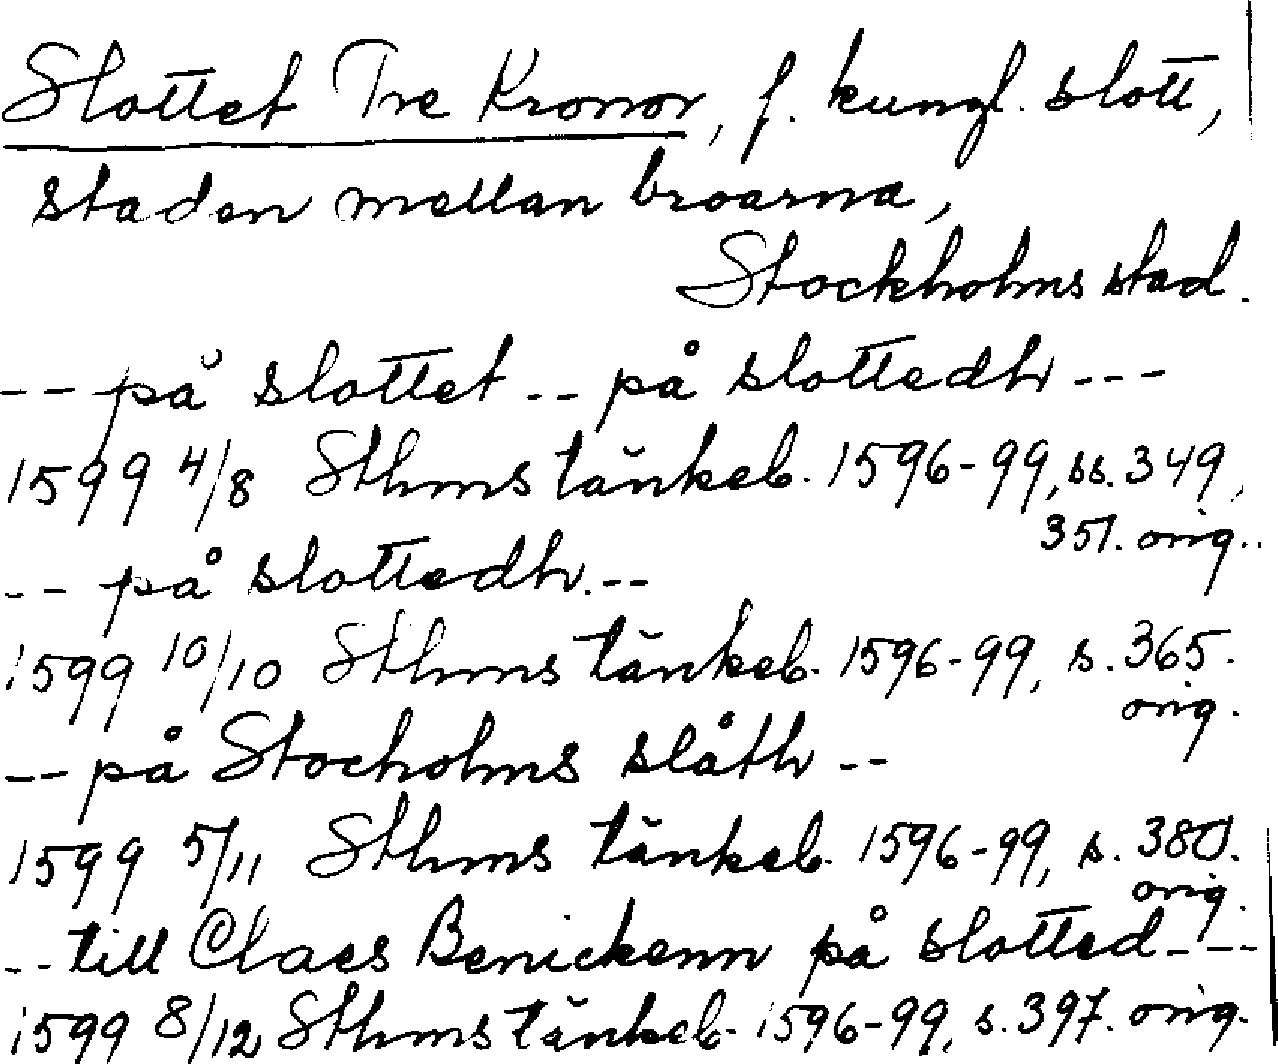 Slottet Tre Kronor, f. kungl. slott,
staden mellan broarna,
Stockholms stad.
-- på slottet -- på slottedh ---
1599 4/8 Sthms tänkeb. 1596-99, ss. 349,
351. orig..
-- på slottedh. --
1599 10/10 Sthms tänkeb. 1596-99, s. 365.
orig.
-- på Stocholms slåth --
1599 5/11 Sthms tänkeb. 1596-99, s. 380.
orig.
-- till Claes Benickenn på slotted ---
1599 8/12 Sthms tänkeb. 1596-99, s. 397. orig.